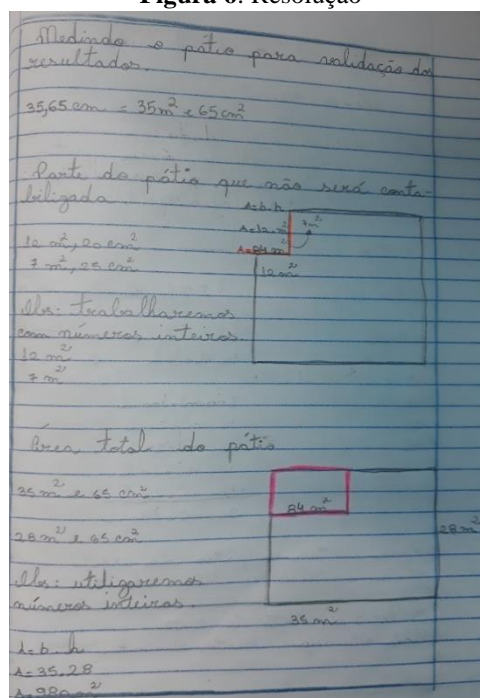 Figura 6: Resolução
Medindo o pátio para validação dos
resultados.
35,65 cm = 35 m² e 65 cm²
Parte do pátio que não será conta-
bilizada
12 m², 20 cm²
7 m², 25 cm²
Obs: trabalharemos
com números inteiros.
12 m²
7 m²
A=b.h
A=12.m²
A=84 m²
7m²
12 m²
Área total do pátio
35 m² e 65 cm²
28 m² e 65 cm²
Obs: utilizaremos
números inteiros.
A=b.h
A=35.28
A=980 m²
84 m²
28 m²
35 m²